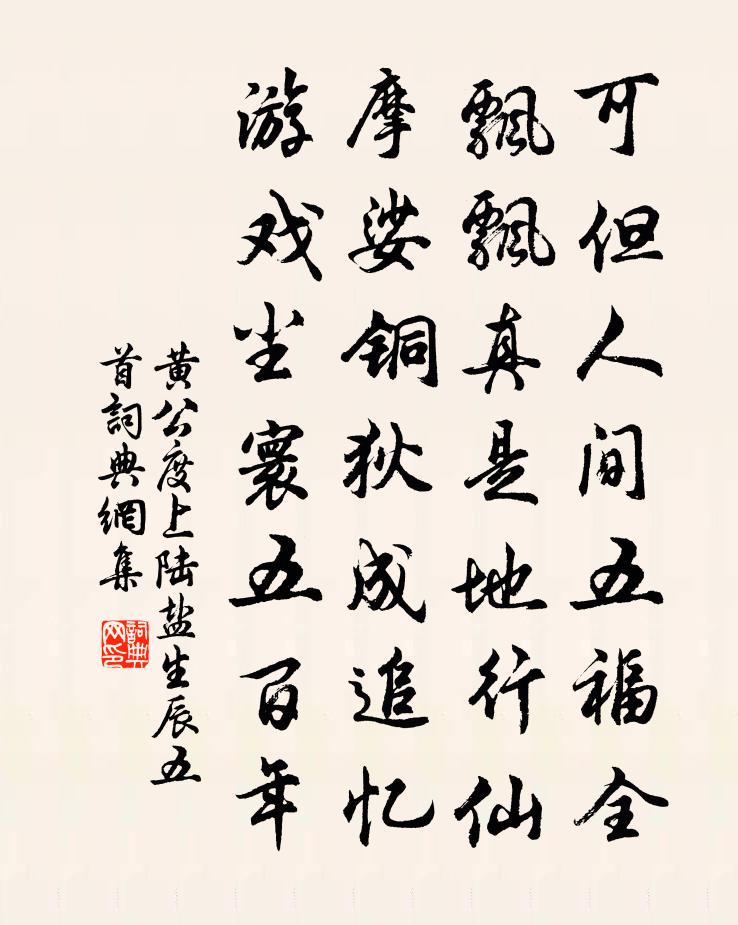 可但人间五福全
飘飘真是地行仙
摩娑铜狄成追忆
游戏尘寰五百年
黄公度上陆盐生辰五
首詞典網集
詞典网印